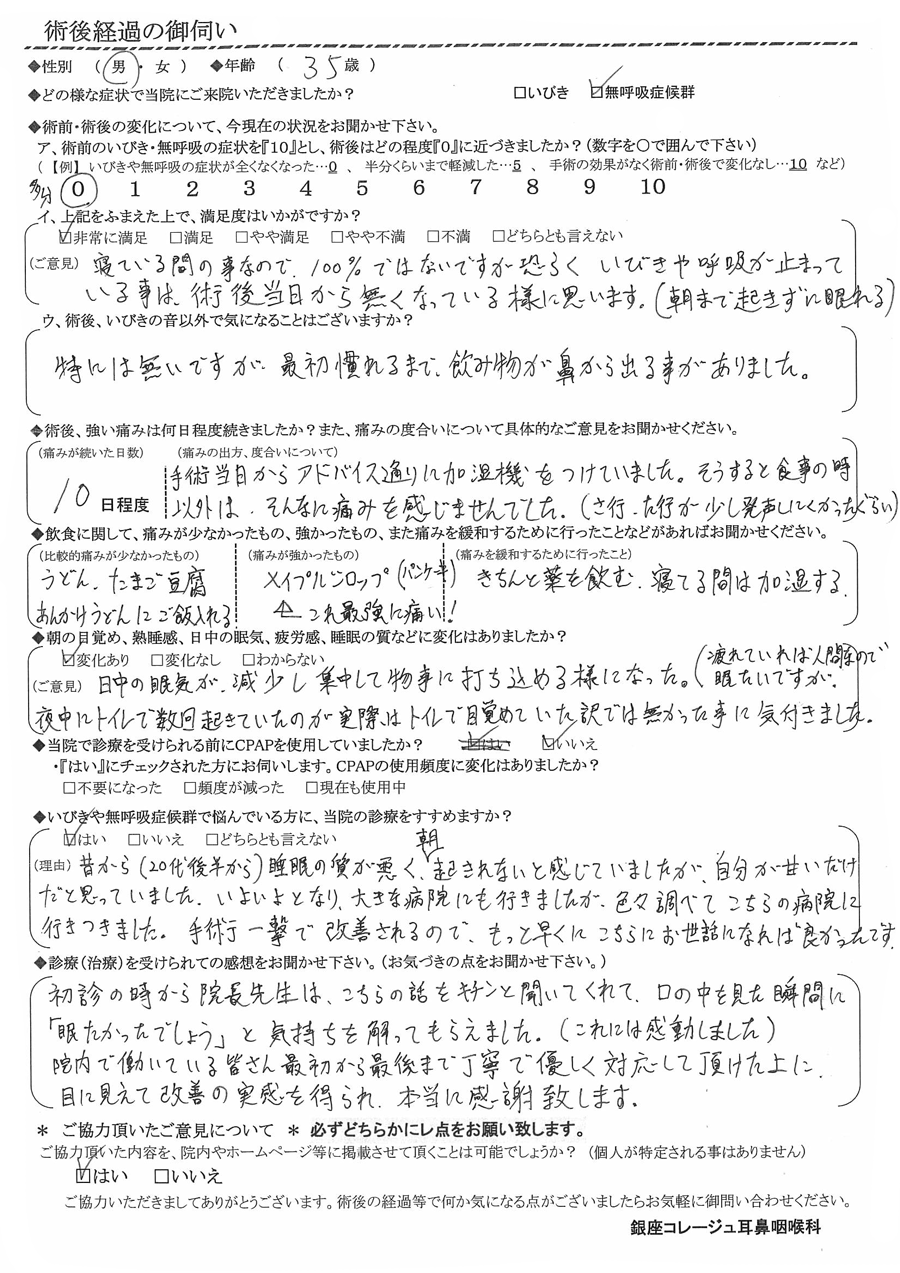 術後経過の御伺い
◆性別 ( 男 ・ 女 ) ◆年齢 ( 35 歳 )
◆どの様な症状で当院にご来院いただきましたか? □いびき ☑無呼吸症候群
◆術前・術後の変化について、今現在の状況をお聞かせ下さい。
ア、術前のいびき・無呼吸の症状を『10』とし、術後はどの程度『0』に近づきましたか?(数字を〇で囲んで下さい)
(【例】いびきや無呼吸の症状が全くなくなった…0 、 半分くらいまで軽減した…5 、 手術の効果がなく術前・術後で変化なし…10 など)
多分 0 1 2 3 4 5 6 7 8 9 10
イ、上記をふまえた上で、満足度はいかがですか?
☑非常に満足 □満足 □やや満足 □やや不満 □不満 □どちらとも言えない
(ご意見) 寝ている間の事なので、100%ではないですが恐らく いびきや呼吸が止まって
いる事は、術後当日から無くなっている様に思います。(朝まで起きずに眠れる)
ウ、術後、いびきの音以外で気になることはございますか?
特には無いですが、最初慣れるまで、飲み物が鼻から出る事がありました。
◆術後、強い痛みは何日程度続きましたか?また、痛みの度合いについて具体的なご意見をお聞かせください。
(痛みが続いた日数) (痛みの出方、度合いについて)
手術当日からアドバイス通りに加湿機をつけていました。そうすると食事の時
10 日程度 以外は、そんなに痛みを感じませんでした。(さ行、た行が少し発声しにくかったぐらい)
◆飲食に関して、痛みが少なかったもの、強かったもの、また痛みを緩和するために行ったことなどがあればお聞かせください。
(比較的痛みが少なかったもの) (痛みが強かったもの) (痛みを緩和するために行ったこと)
うどん、たまご豆腐 メイプルシロップ(パンケーキ) きちんと薬を飲む、寝てる間は加湿する。
あんかけうどんにご飯入れる ↑これ最強に痛い!
◆朝の目覚め、熟睡感、日中の眠気、疲労感、睡眠の質などに変化はありましたか?
☑変化あり □変化なし □わからない
(ご意見) 日中の眠気が、減少し集中して物事に打ち込める様になった。(疲れていれば人間なので眠たいですが、
夜中にトイレで数回起きていたのが実際はトイレで目覚めていた訳では無かった事に気付きました。
◆当院で診療を受けられる前にCPAPを使用していましたか? ☑はい ☑いいえ
・『はい』にチェックされた方にお伺いします。CPAPの使用頻度に変化はありましたか?
□不要になった □頻度が減った □現在も使用中
◆いびきや無呼吸症候群で悩んでいる方に、当院の診療をすすめますか?
☑はい □いいえ □どちらとも言えない
(理由) 昔から(20代後半から)睡眠の質が悪く、朝起きれないと感じていましたが、自分が甘いだけ
だと思っていました。いよいよとなり、大きな病院にも行きましたが、色々調べてこちらの病院に
行きつきました。手術一撃で改善されるので、もっと早くにこちらにお世話になれば良かったです。
◆診療(治療)を受けられての感想をお聞かせ下さい。(お気づきの点をお聞かせ下さい。)
初診の時から院長先生は、こちらの話をキチンと聞いてくれて、口の中を見た瞬間に
「眠たかったでしょう」と気持ちを解ってもらえました。(これには感動しました)
院内で働いている皆さん最初から最後まで丁寧で優しく対応して頂けた上に、
目に見えて改善の実感を得られ、本当に感謝致します。
* ご協力頂いたご意見について * 必ずどちらかにレ点をお願い致します。
ご協力頂いた内容を、院内やホームページ等に掲載させて頂くことは可能でしょうか? (個人が特定される事はありません)
☑はい □いいえ
ご協力いただきましてありがとうございます。術後の経過等で何か気になる点がございましたらお気軽に御問い合わせください。
銀座コレージュ耳鼻咽喉科